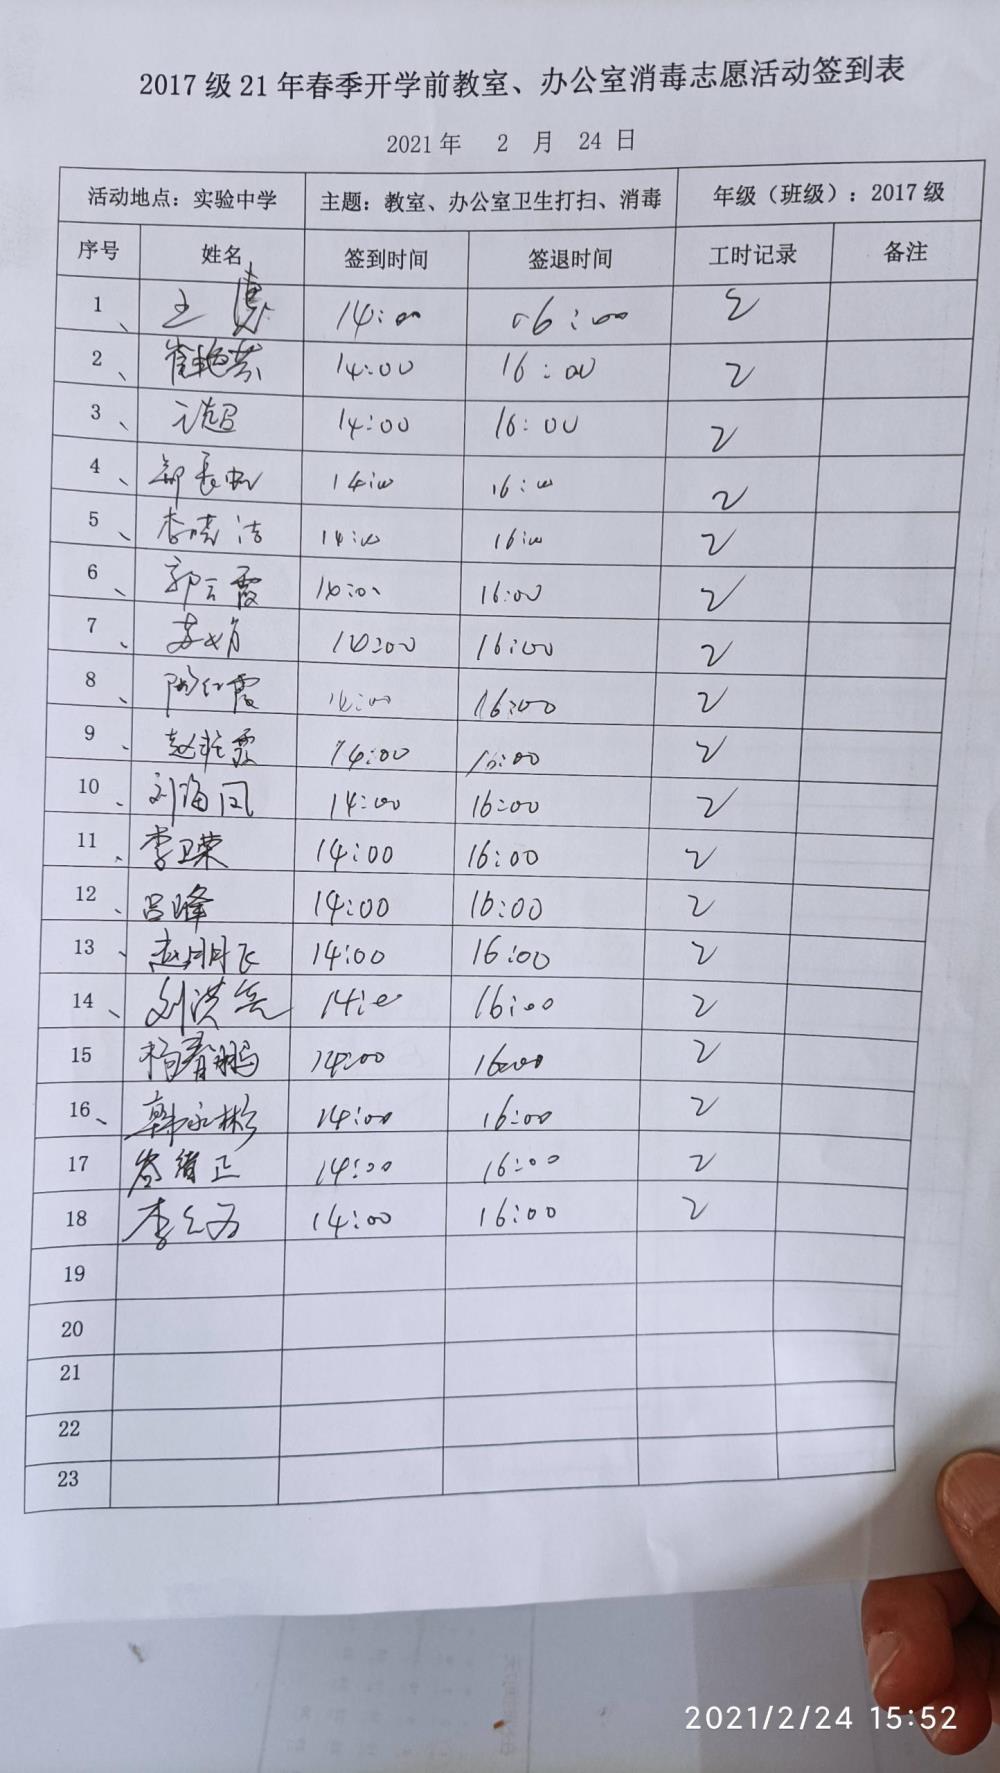 2017 级 21 年春季开学前教室、办公室消毒志愿活动签到表
2021 年 2 月 24 日
活动地点：实验中学 主题：教室、办公室卫生打扫、消毒 年级（班级）：2017 级
序号 姓名 签到时间 签退时间 工时记录 备注
1、 14:00 16:00 2
2、 14:00 16:00 2
3、 14:00 16:00 2
4、 14:00 16:00 2
5、 李晓洁 14:00 16:00 2
6、 郭云霞 16:00 2
7、 16:00 2
8、 陶红霞 14:00 16:00 2
9、 14:00 16:00 2
10、 刘海凤 14:00 16:00 2
11、 李卫荣 14:00 16:00 2
12、 吕峰 14:00 16:00 2
13、 赵明飞 14:00 16:00 2
14、 刘洪亮 14:00 16:00 2
15 杨春鹏 14:00 16:00 2
16、 韩永彬 14:00 16:00 2
17 14:00 16:00 2
18 14:00 16:00 2
19
20
21
22
23
2021/2/24 15:52